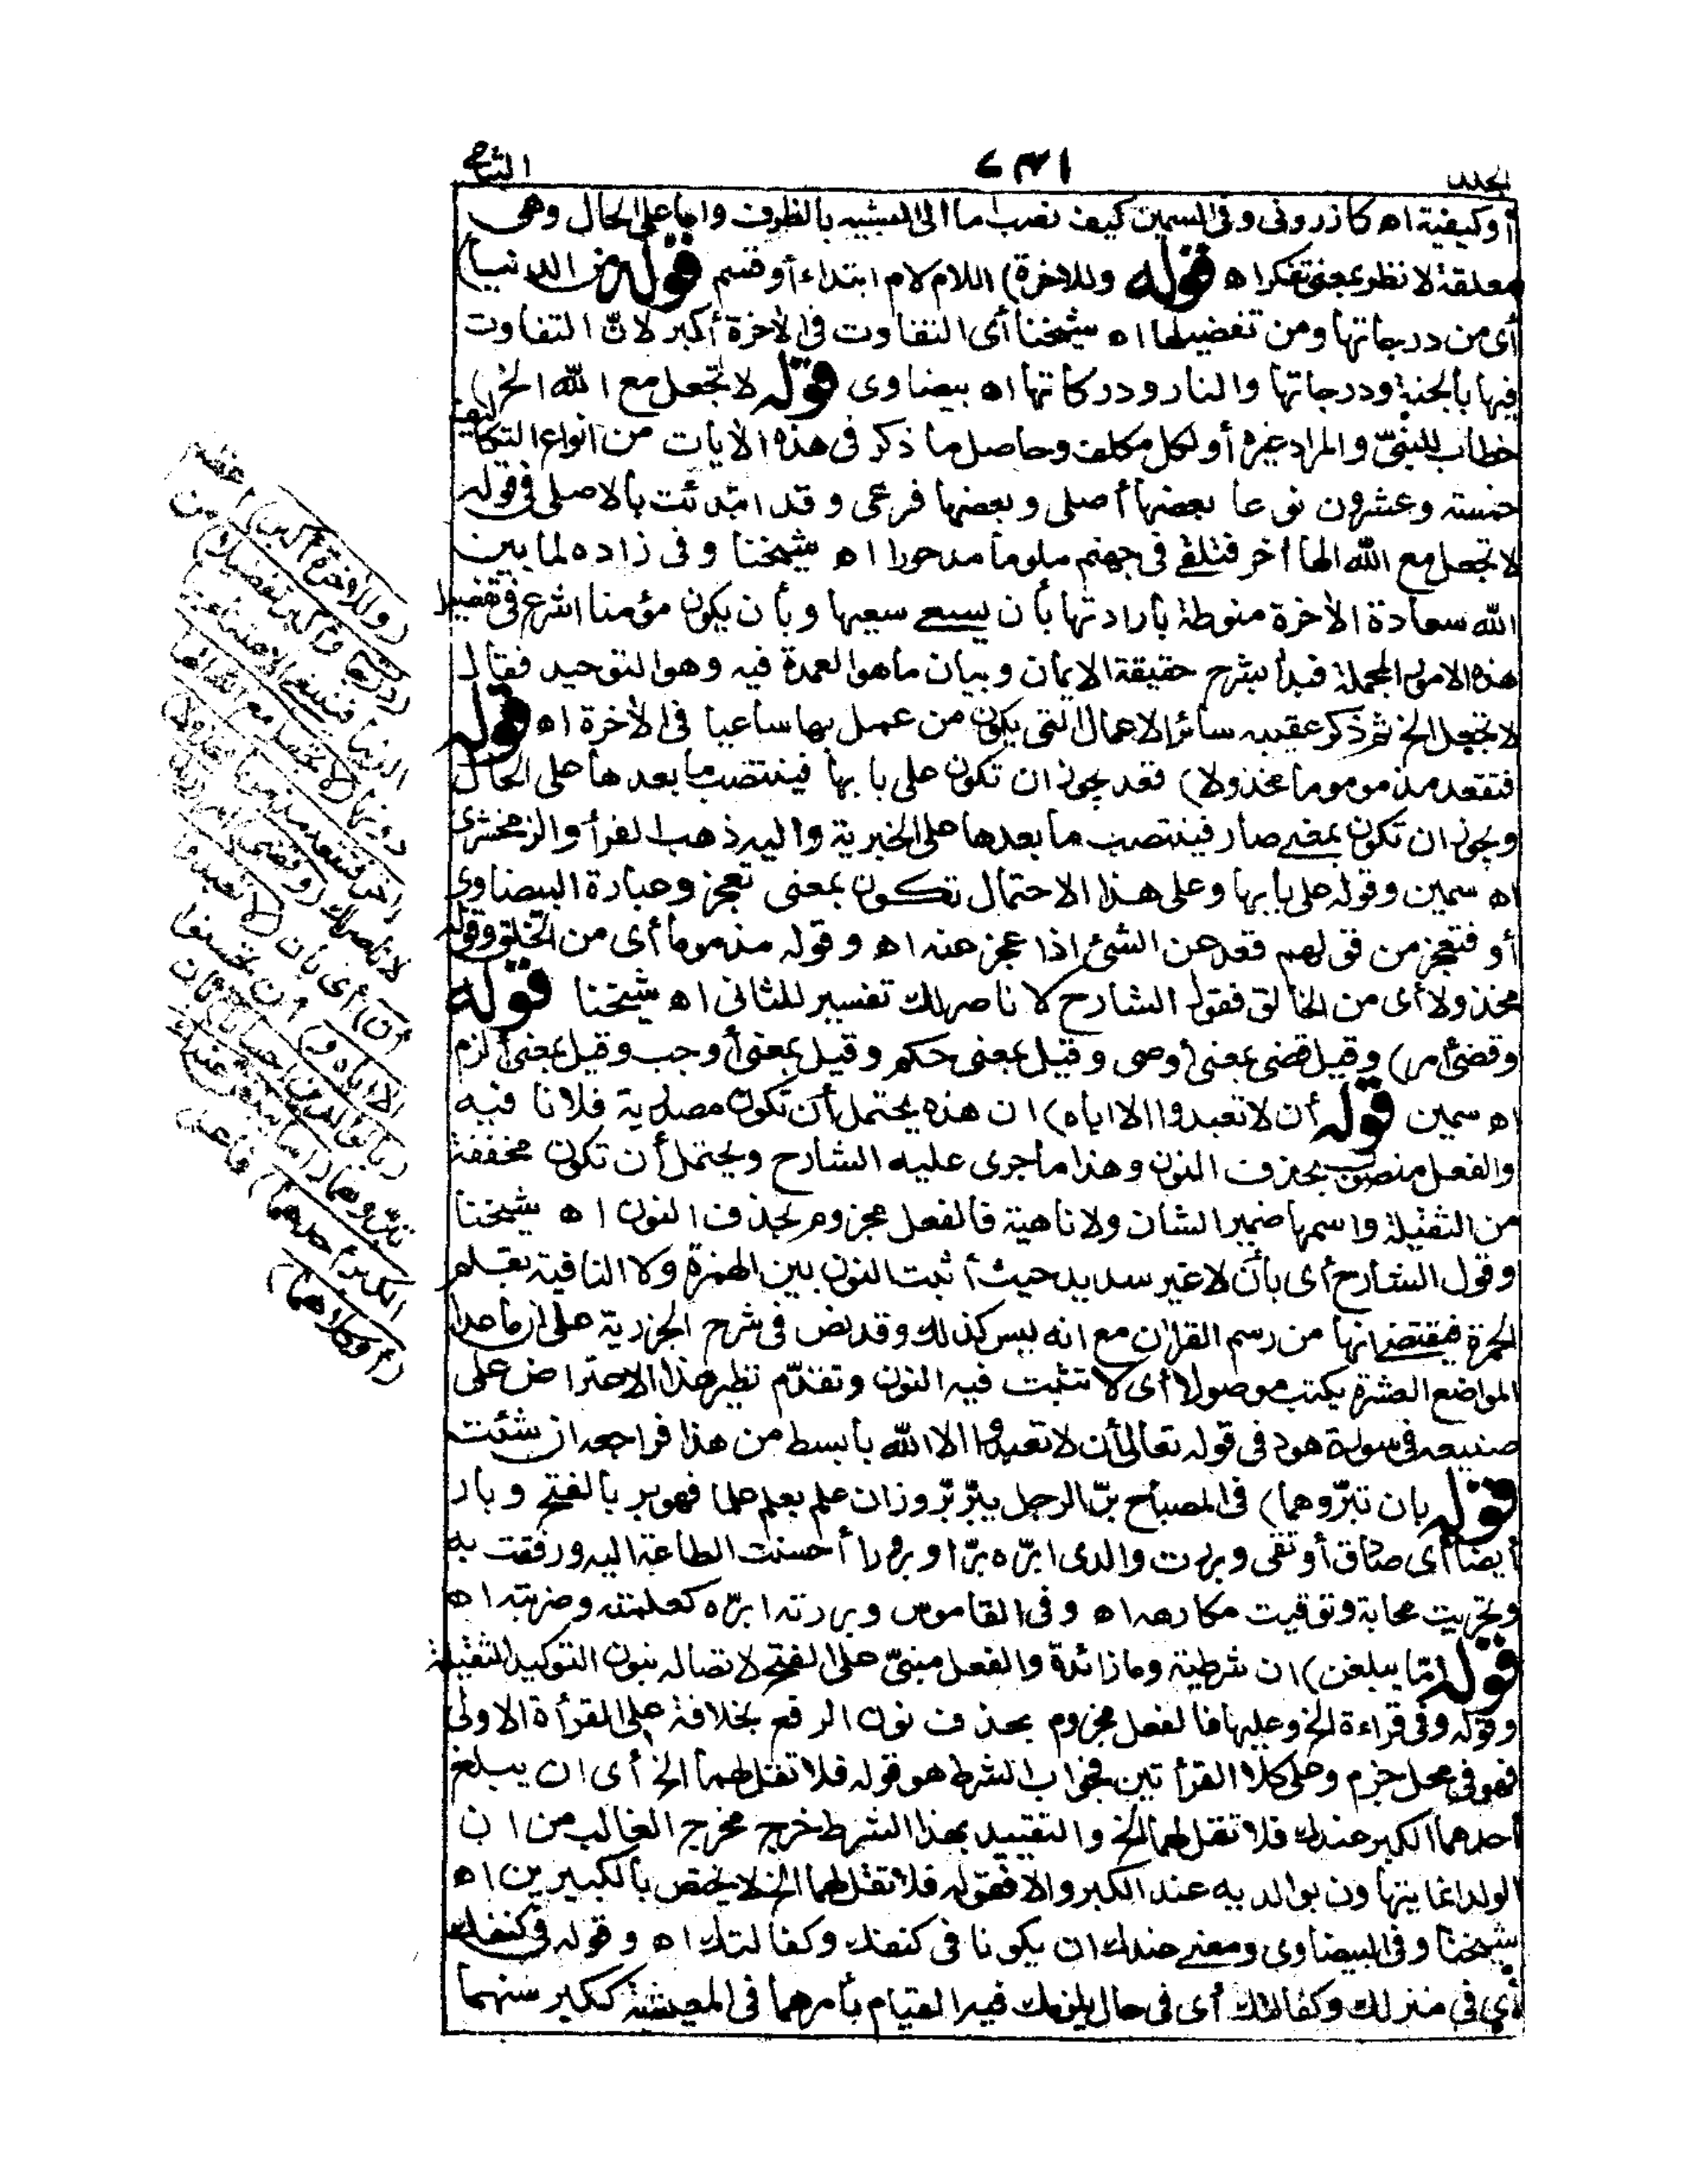 المجلد ٦٣١ الثاني
أو كيفية اه كازروني وفي السمين كيف نصب اما الى التشبيه بالظرف واما على الحال وهى
معلقة لا نظر بمعنى تفكر اه قوله وللاخرة) اللام لام ابتداء أو قسم قوله من الدنيا)
أى من درجاتها ومن تفضيلها اه شيخنا أى التفاوت في الأخرة أكبر لانّ التفاوت
فيها بالجنة ودرجاتها والنار ودركاتها اه بيضاوى قوله لا تجعل مع الله الخ)
خطاب للنبىّ والمراد غيره أو لكل مكلف وحاصل ما ذكر فى هذه الأيات من انواع التكاليف
خمسة وعشرون نوعا بعضها أصلى وبعضها فرعى وقد ابتدئت بالاصلى فى قوله
لا تجعل مع الله الها أخر فتلقى فى جهنم ملوما مدحورا اه شيخنا وفى زاده لما بين
الله سعادة الأخرة منوطة بارادتها بأن يسعى سعيها وبأن يكون مؤمنا اشرع فى تفصيل
هذه الامور المجملة فبدأ بشرح حقيقة الايمان وبيان ما هو العمدة فيه وهو التوحيد فقال
لا تجعل الخ ثم ذكر عقيبه سائر الاعمال التى يكون من عمل بها ساعيا فى الأخرة اه قوله
فتقعد مذموما مخذولا) فقد يجوز ان تكون على بابها فينتصب ما بعدها على الحال
ويجوز ان تكون بمعنى صار فينتصب ما بعدها على الخبرية واليه ذهب الفرأ والزمخشرى
اه سمين وقوله على بابها وعلى هذا الاحتمال تكون بمعنى تعجز وعبارة البيضاوى
أو فتعجز من قولهم قعد عن الشئ اذا عجز عنه اه وقوله مذموما أى من الخلق وقوله
مخذولا أى من الخالق فقول الشارح لا ناصر لك تفسير للثانى اه شيخنا قوله
وقضى أمر) وقيل قضى بمعنى أوصى وقيل بمعنى حكم وقيل بمعنى أوجب وقيل بمعنى ألزم
اه سمين قوله أن لا تعبدوا الا اياه) ان هذه يحتمل أن تكون مصدرية فلا نافيه
والفعل منصوب بحذف النون وهذا ما جرى عليه الشارح ويحتمل أن تكون مخففة
من الثقيلة واسمها ضمير الشان ولا ناهية فالفعل مجزوم بحذف النون اه شيخنا
وقول الشارح أى بأن لا غير سديد حيث أثبت النون بين الهمزة ولا النافية بقلم
الحمرة فيقتضى انها من رسم القرأن مع انه ليس كذلك وقد نص فى شرح الجزرية على ان ما عدا
المواضع العشرة يكتب موصولا أى لا تثبت فيه النون وتقدّم نظير هذا الاعتراض على
صنيعه فى سورة هود فى قوله تعالى أن لا تعبدوا الا الله بأبسط من هذا فراجعه ان شئت
قوله بان تبرّوهما) فى المصباح برّ الرجل يبرّ برّ وزان علم يعلم علما فهو بر بالفتح وبار
أيضا أى صادق أو تقى وبررت والدى ابرّه برّا وبرورا أحسنت الطاعة اليه ورفقت به
وتحريت محابة وتوقيت مكارهه اه وفى القاموس وبررته ابرّه كعلمته وضربته اه
قوله إمّا يبلغن) ان شرطية وما زائدة والفعل مبنىّ على الفتح لاتصاله بنون التوكيد الثقيلة
وقوله وفى قراءة الخ وعليها فالفعل مجزوم بحذف نون الرفع بخلافه على القرأة الاولى
فهو فى محل جزم وعلى كلا القرأتين فجواب الشرط هو قوله فلا تقل لهما الخ أى ان يبلغ
أحدهما الكبر عندك فلا تقل لهما الخ والتقييد بهذا الشرط خرج مخرج الغالب من ان
الولد انما يتهاون بوالديه عند الكبر والا فقوله فلا تقل لهما الخ لا يختص بالكبيرين اه
شيخنا وفى البيضاوى ومعنى عندك ان يكونا فى كنفك وكفالتك اه وقوله فى كنفك
أي فى منزلك وكفالتك أى فى حال يلزمك فيه القيام بأمرهما فى المعيشة ككبر سنهما
(وللأخرة أكبر) اعظم
(درجات وأكبر تفضيلا) من
الدنيا فينبغى الاعتناء بها
دونها (لا تجعل مع الله الها
أخر فتقعد مذموما مخذولا)
لا ناصر لك (وقضى) أمر (ربك
أن) أى بأن (لا تعبدوا
الا اياه و) أن تحسنوا
(بالوالدين احسانا) بأن
تبرّوهما (اما يبلغن عندك
الكبر أحدهما) فاعل
(أو كلاهما)